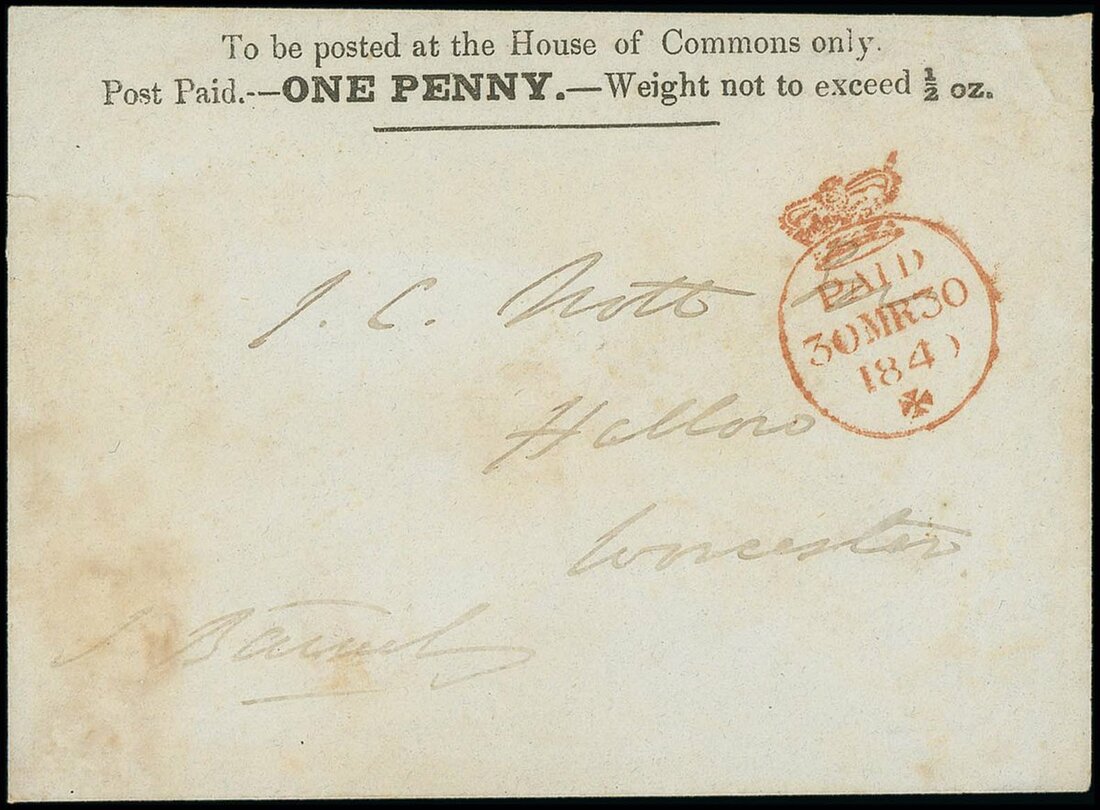 To be posted at the House of Commons only.
Post Paid.--—ONE PENNY.—Weight not to exceed ½ oz.
PAID
30MR30
184
J. C. Nott
Hallow
Worcester